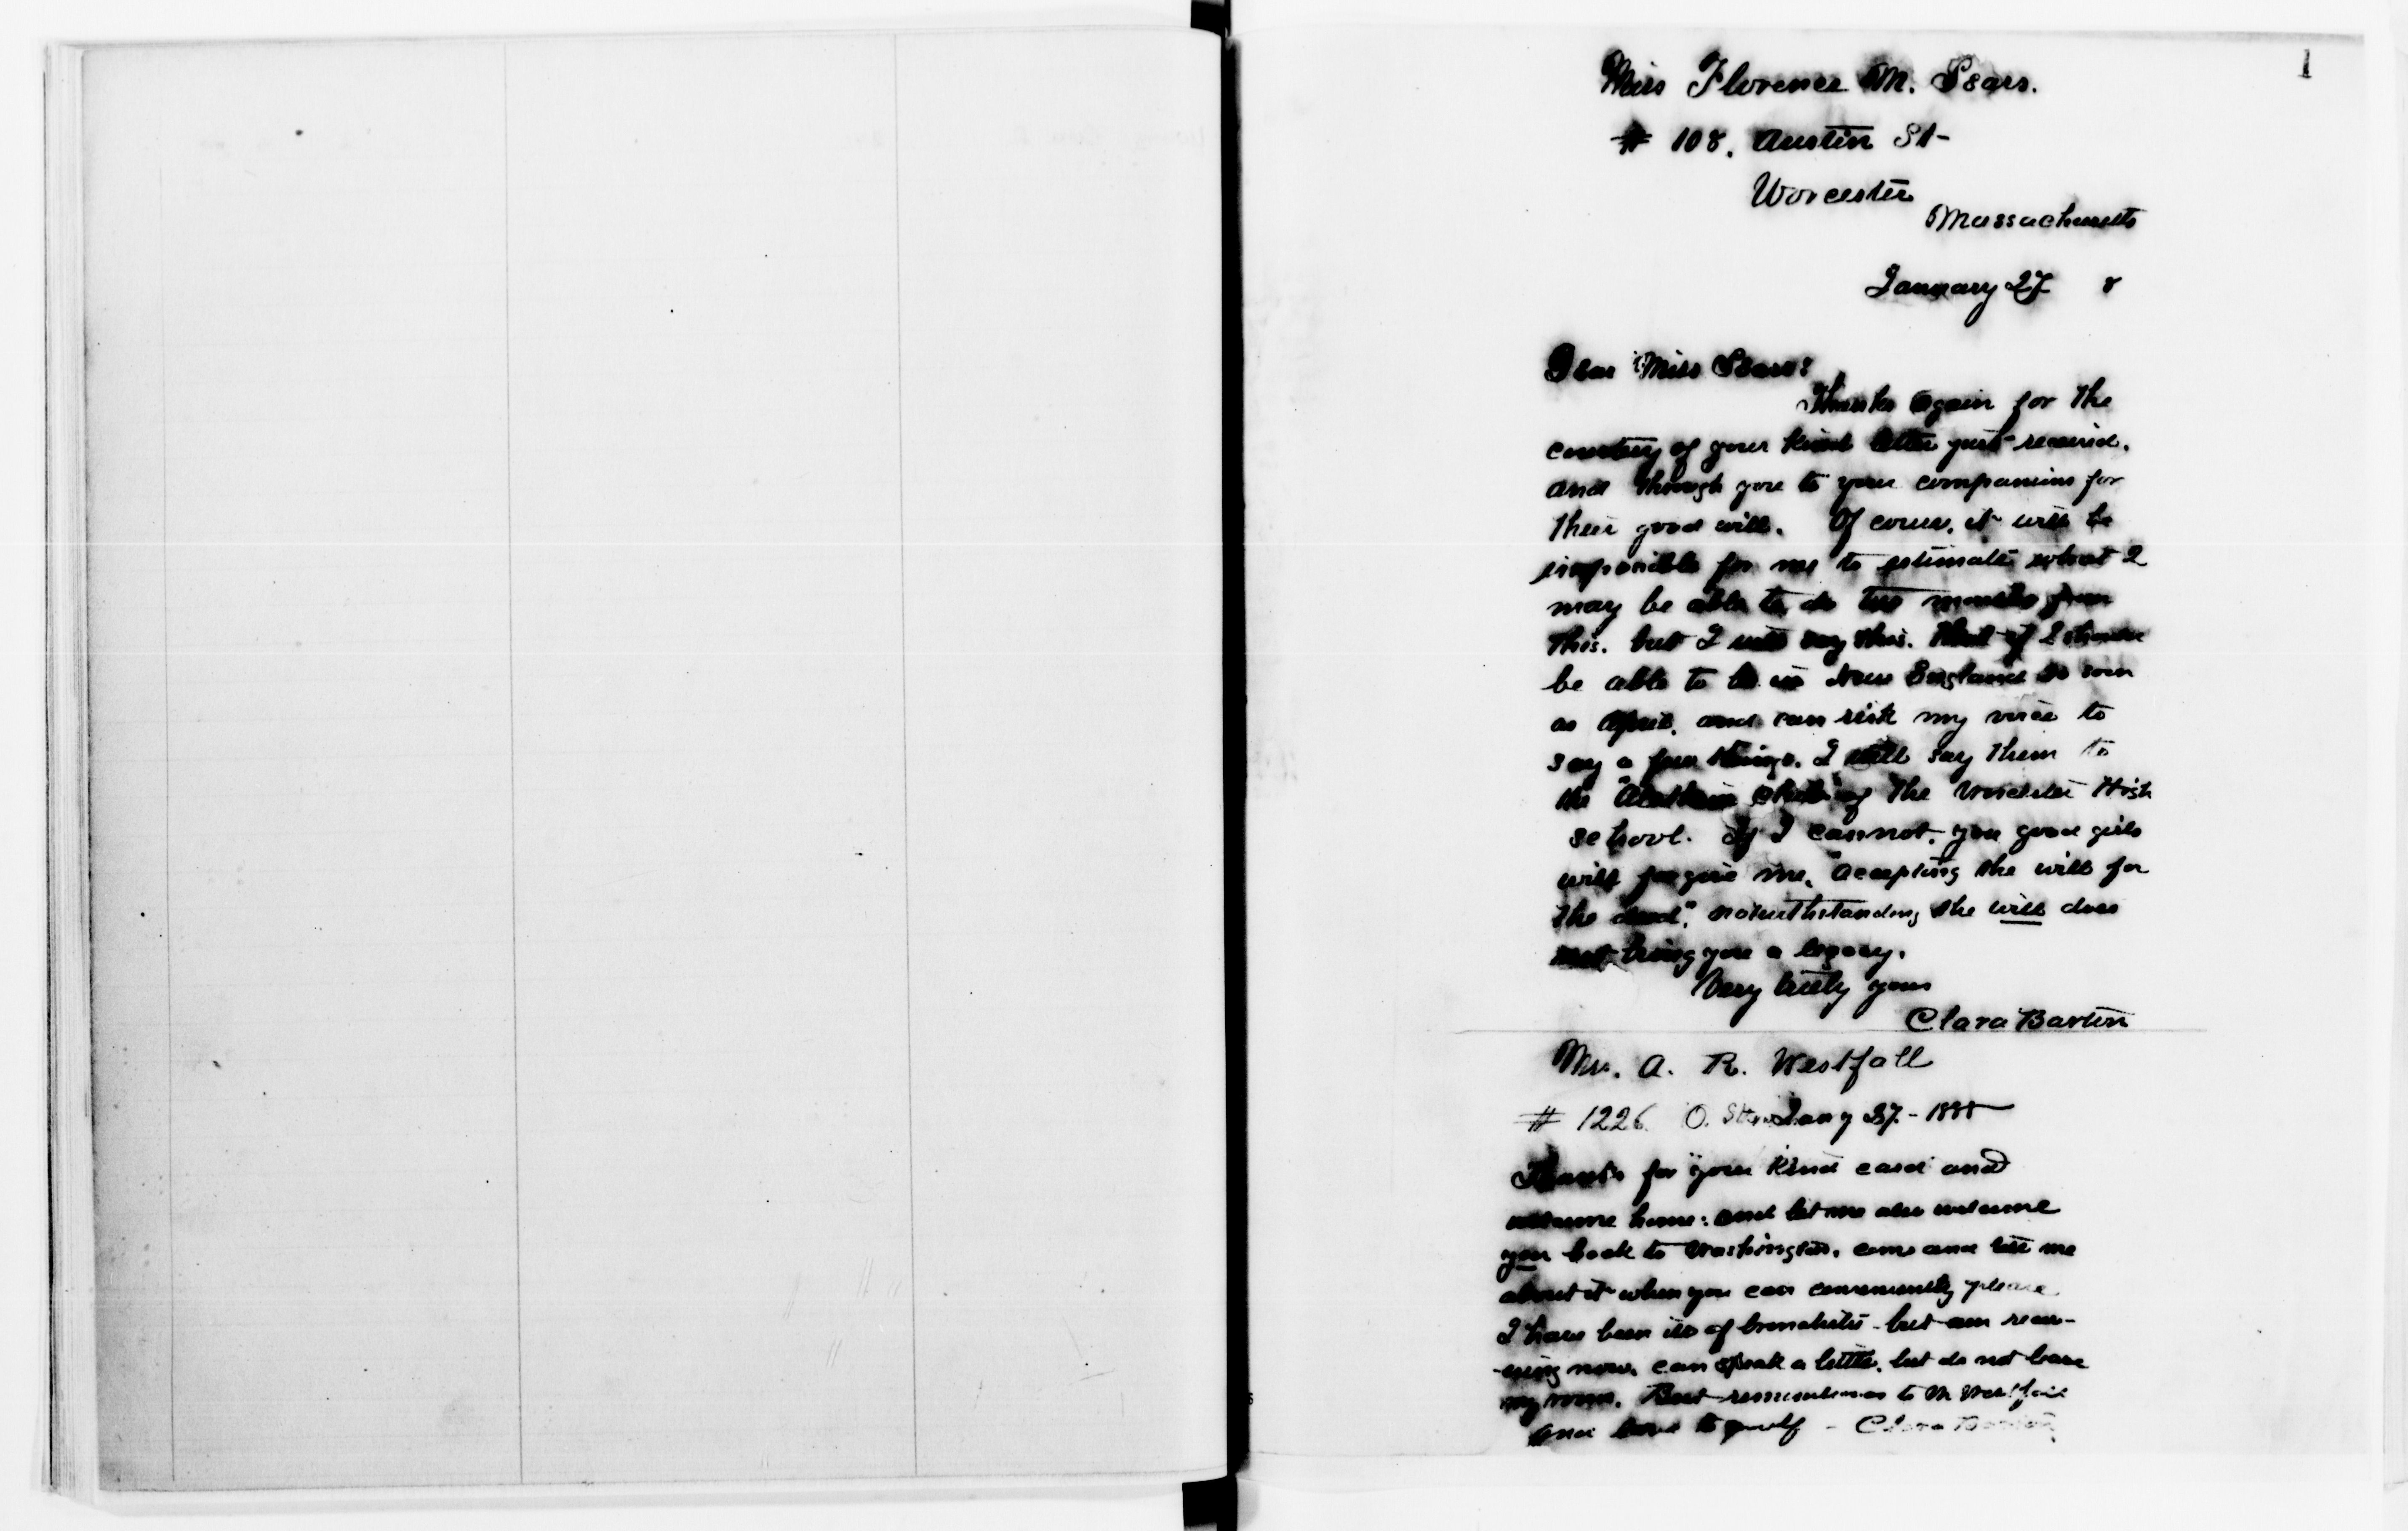 1
Miss Florence M. Sears.
# 108. Austin St-
Worcester
Massachusetts
January 27 8
Dear Miss Sears:
Thanks again for the
courtesy of your kind letter just received.
and through you to your companions for
their good will. Of course, it will be
impossible for me to estimate what I
may be able to do two months from
this. but I will say this. that if I should
be able to be in New England so soon
as April, and can risk my voice to
say a few things. I will say them to
the of the Worcester High
school. If I cannot, you good girls
will forgive me, "accepting the will for
the deed", notwithstanding the will does
not bring you a legacy.
Very truly yours
Clara Barton
A. R. Westfall
# 1226 O. Jany 27 - 1888
Thanks for your kind card and
welcome home: and let me also welcome
you back to Washington. come and tell me
about it when you can conveniently please
I have been ill of bronchitis - but am recov-
ering now. can speak a little. but do not leave
my room. Best remembrances to M Westfall
and love to yourself - Clara Barton